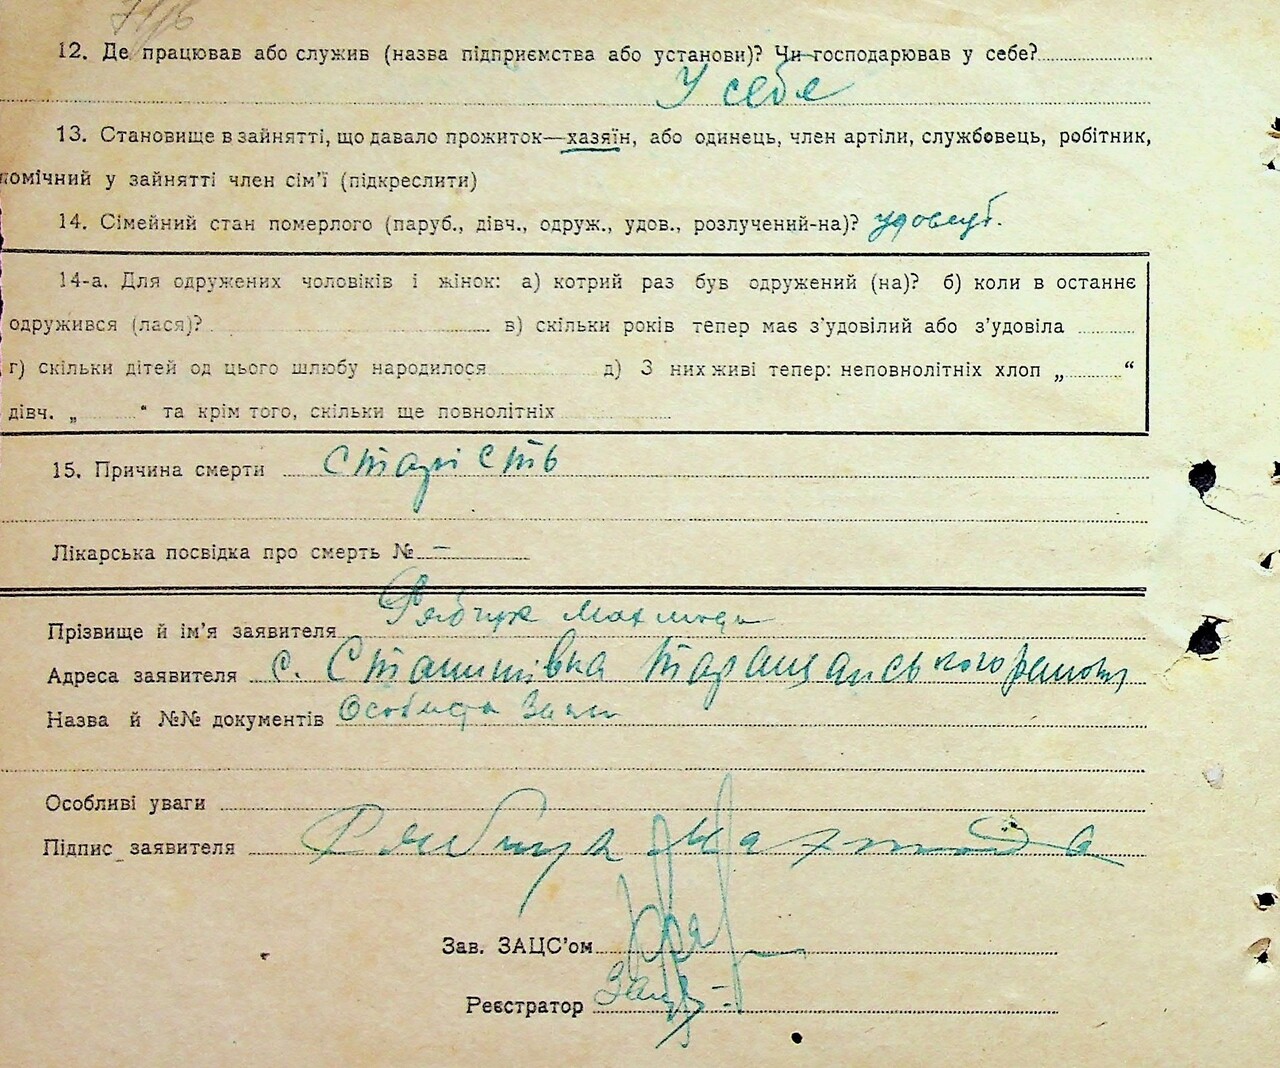 12. Де працював або служив (назва підприємства або установи)? Чи господарював у себе?
У себе
13. Становище в зайнятті, що давало прожиток—хазяїн, або одинець, член артіли, службовець, робітник,
помічний у зайнятті член сім'ї (підкреслити)
14. Сімейний стан померлого (паруб., дівч., одруж., удов., розлучений-на)?
14-а. Для одружених чоловіків і жінок: а) котрий раз був одружений (на)? б) коли в останнє
одружився (лася)? в) скільки років тепер має з'удовілий або з'удовіла
г) скільки дітей од цього шлюбу народилося д) З них живі тепер: неповнолітніх хлоп „ “
дівч. „ “ та крім того, скільки ще повнолітніх
15. Причина смерти старість
Лікарська посвідка про смерть № —
Прізвище й ім'я заявителя Рябчук
Адреса заявителя с. Станишівка Таращанського району
Назва й №№ документів Особиста
Особливі уваги
Підпис заявителя Рябчук
Зав. ЗАЦС'ом
Реєстратор